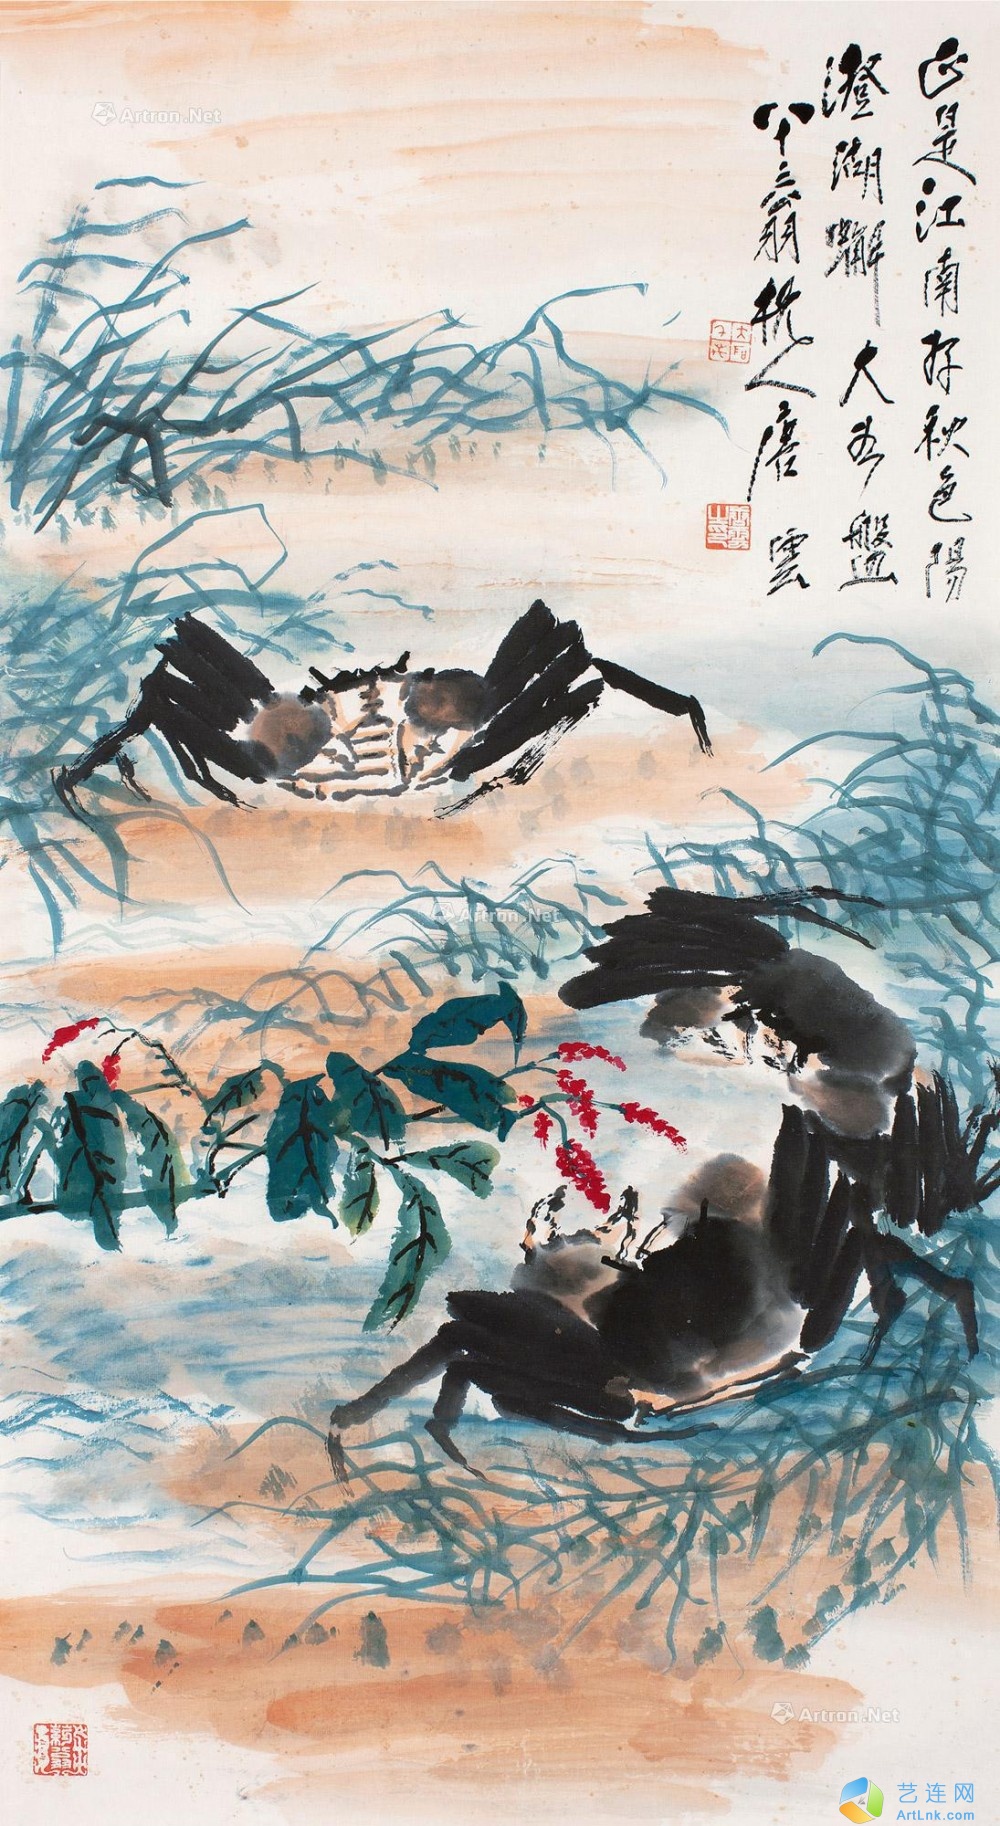 正是江南好秋色陽
澄湖蠏大如盤
八十三翁杭人唐雲
Artron.Net
Artron.Net
Artron.Net
艺连网
ArtLnk.com